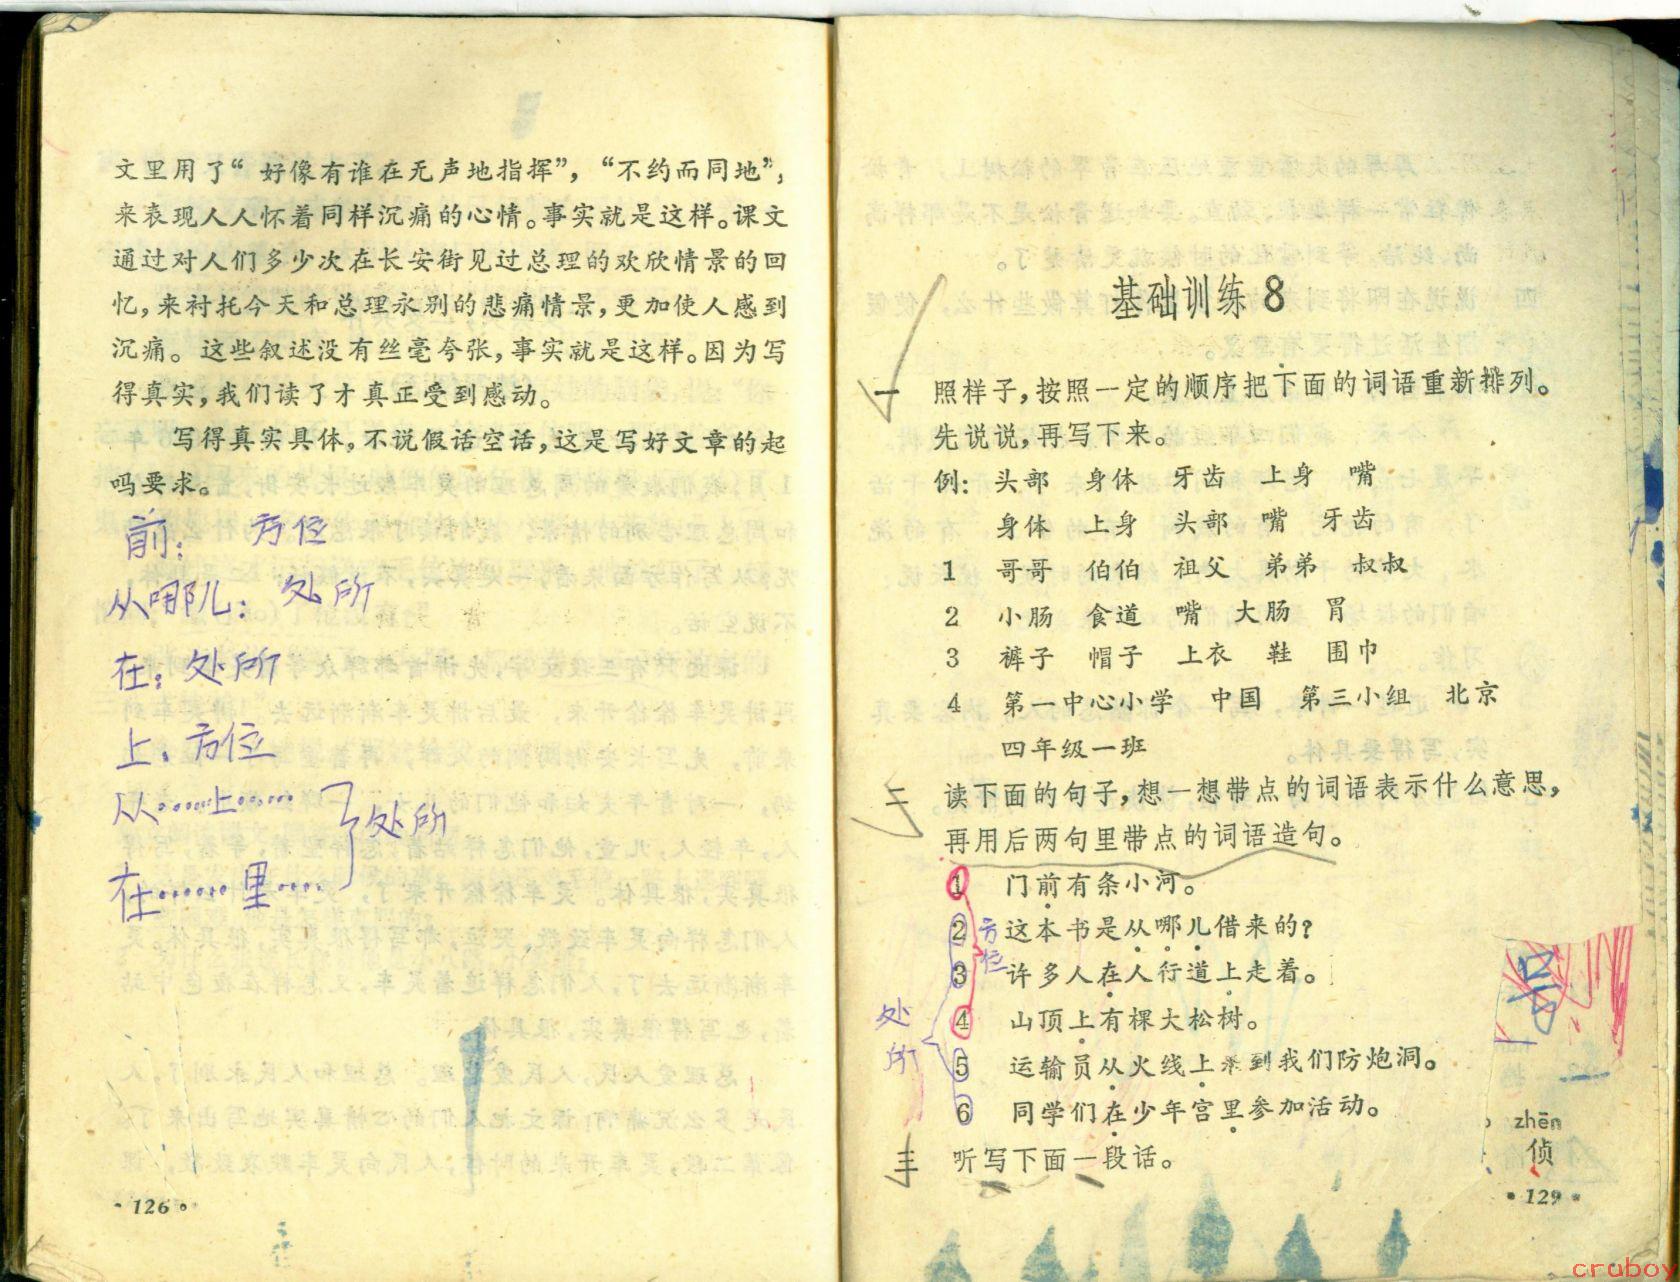 文里用了“好像有谁在无声地指挥”，“不约而同地”，
来表现人人怀着同样沉痛的心情。事实就是这样。课文
通过对人们多少次在长安街见过总理的欢欣情景的回
忆，来衬托今天和总理永别的悲痛情景，更加使人感到
沉痛。这些叙述没有丝毫夸张，事实就是这样。因为写
得真实，我们读了才真正受到感动。
写得真实具体，不说假话空话，这是写好文章的起
吗要求。
前：方位
从哪儿：处所
在：处所
上、方位
从……上……
处所
在……里……
·126·
基础训练8
一 照样子，按照一定的顺序把下面的词语重新排列。
先说说，再写下来。
例：头部 身体 牙齿 上身 嘴
身体 上身 头部 嘴 牙齿
1 哥哥 伯伯 祖父 弟弟 叔叔
2 小肠 食道 嘴 大肠 胃
3 裤子 帽子 上衣 鞋 围巾
4 第一中心小学 中国 第三小组 北京
四年级一班
二 读下面的句子，想一想带点的词语表示什么意思，
再用后两句里带点的词语造句。
1 门前有条小河。
2 这本书是从哪儿借来的？
方位
3 许多人在人行道上走着。
4 山顶上有棵大松树。
处所
5 运输员从火线上来到我们防炮洞。
6 同学们在少年宫里参加活动。
三 听写下面一段话。
zhēn
侦
·129·
cruboy